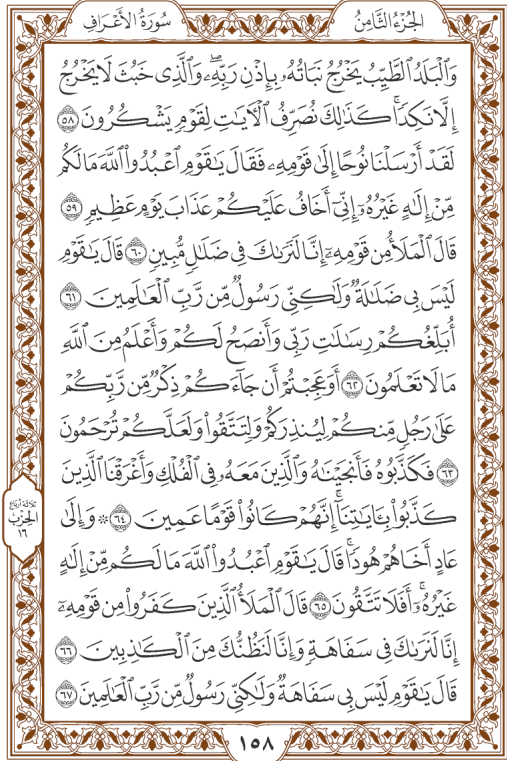 سُورَةُ الأَعْرَافِ
الجُزْءُ الثَّامِنُ
وَٱلْبَلَدُ ٱلطَّيِّبُ يَخْرُجُ نَبَاتُهُۥ بِإِذْنِ رَبِّهِۦۖ وَٱلَّذِى خَبُثَ لَا يَخْرُجُ
إِلَّا نَكِدًاۚ كَذَٰلِكَ نُصَرِّفُ ٱلْءَايَٰتِ لِقَوْمٍ يَشْكُرُونَ ٥٨
لَقَدْ أَرْسَلْنَا نُوحًا إِلَىٰ قَوْمِهِۦ فَقَالَ يَٰقَوْمِ ٱعْبُدُوا۟ ٱللَّهَ مَا لَكُم
مِّنْ إِلَٰهٍ غَيْرُهُۥٓ إِنِّىٓ أَخَافُ عَلَيْكُمْ عَذَابَ يَوْمٍ عَظِيمٍ ٥٩
قَالَ ٱلْمَلَأُ مِن قَوْمِهِۦٓ إِنَّا لَنَرَىٰكَ فِى ضَلَٰلٍ مُّبِينٍ ٦٠ قَالَ يَٰقَوْمِ
لَيْسَ بِى ضَلَٰلَةٌ وَلَٰكِنِّى رَسُولٌ مِّن رَّبِّ ٱلْعَٰلَمِينَ ٦١
أُبَلِّغُكُمْ رِسَٰلَٰتِ رَبِّى وَأَنصَحُ لَكُمْ وَأَعْلَمُ مِنَ ٱللَّهِ
مَا لَا تَعْلَمُونَ ٦٢ أَوَعَجِبْتُمْ أَن جَآءَكُمْ ذِكْرٌ مِّن رَّبِّكُمْ
عَلَىٰ رَجُلٍ مِّنكُمْ لِيُنذِرَكُمْ وَلِتَتَّقُوا۟ وَلَعَلَّكُمْ تُرْحَمُونَ
٦٣ فَكَذَّبُوهُ فَأَنجَيْنَٰهُ وَٱلَّذِينَ مَعَهُۥ فِى ٱلْفُلْكِ وَأَغْرَقْنَا ٱلَّذِينَ
كَذَّبُوا۟ بِـَٔايَٰتِنَآۚ إِنَّهُمْ كَانُوا۟ قَوْمًا عَمِينَ ٦٤ ۞ وَإِلَىٰ
عَادٍ أَخَاهُمْ هُودًاۚ قَالَ يَٰقَوْمِ ٱعْبُدُوا۟ ٱللَّهَ مَا لَكُم مِّنْ إِلَٰهٍ
غَيْرُهُۥٓۚ أَفَلَا تَتَّقُونَ ٦٥ قَالَ ٱلْمَلَأُ ٱلَّذِينَ كَفَرُوا۟ مِن قَوْمِهِۦٓ
إِنَّا لَنَرَىٰكَ فِى سَفَاهَةٍ وَإِنَّا لَنَظُنُّكَ مِنَ ٱلْكَٰذِبِينَ ٦٦
قَالَ يَٰقَوْمِ لَيْسَ بِى سَفَاهَةٌ وَلَٰكِنِّى رَسُولٌ مِّن رَّبِّ ٱلْعَٰلَمِينَ ٦٧
ثلاثة أرباع
الحزب
١٦
١٥٨